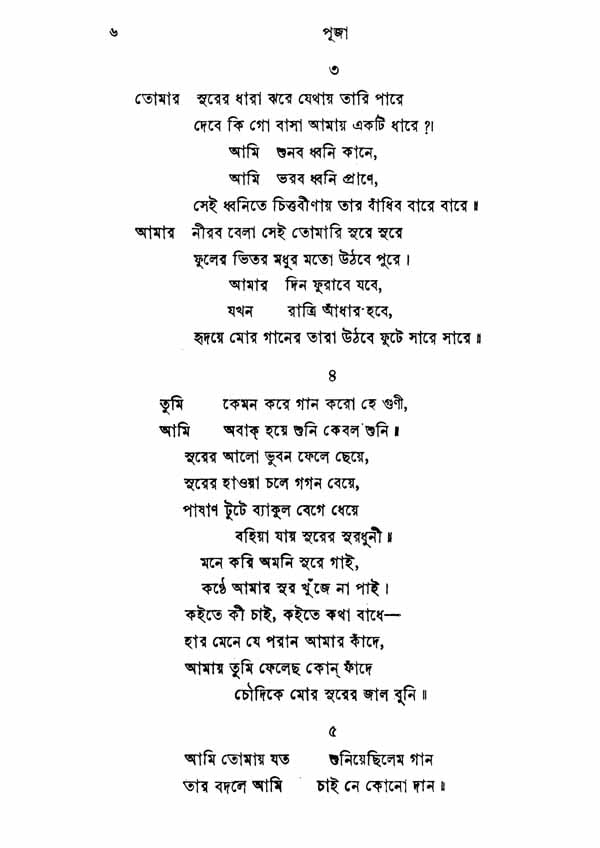 ৬ পূজা
৩
তোমার সুরের ধারা ঝরে যেথায় তারি পারে
দেবে কি গো বাসা আমায় একটি ধারে ?।
আমি শুনব ধ্বনি কানে,
আমি ভরব ধ্বনি প্রাণে,
সেই ধ্বনিতে চিত্তবীণায় তার বাঁধিব বারে বারে॥
আমার নীরব বেলা সেই তোমারি সুরে সুরে
ফুলের ভিতর মধুর মতো উঠবে পুরে।
আমার দিন ফুরাবে যবে,
যখন রাত্রি আঁধার হবে,
হৃদয়ে মোর গানের তারা উঠবে ফুটে সারে সারে॥
৪
তুমি কেমন করে গান করো হে গুণী,
আমি অবাক্ হয়ে শুনি কেবল শুনি॥
সুরের আলো ভুবন ফেলে ছেয়ে,
সুরের হাওয়া চলে গগন বেয়ে,
পাষাণ টুটে ব্যাকুল বেগে ধেয়ে
বহিয়া যায় সুরের সুরধুনী॥
মনে করি অমনি সুরে গাই,
কণ্ঠে আমার সুর খুঁজে না পাই।
কইতে কী চাই, কইতে কথা বাধে—
হার মেনে যে পরান আমার কাঁদে,
আমায় তুমি ফেলেছ কোন্ ফাঁদে
চৌদিকে মোর সুরের জাল বুনি॥
৫
আমি তোমায় যত শুনিয়েছিলেম গান
তার বদলে আমি চাই নে কোনো দান॥